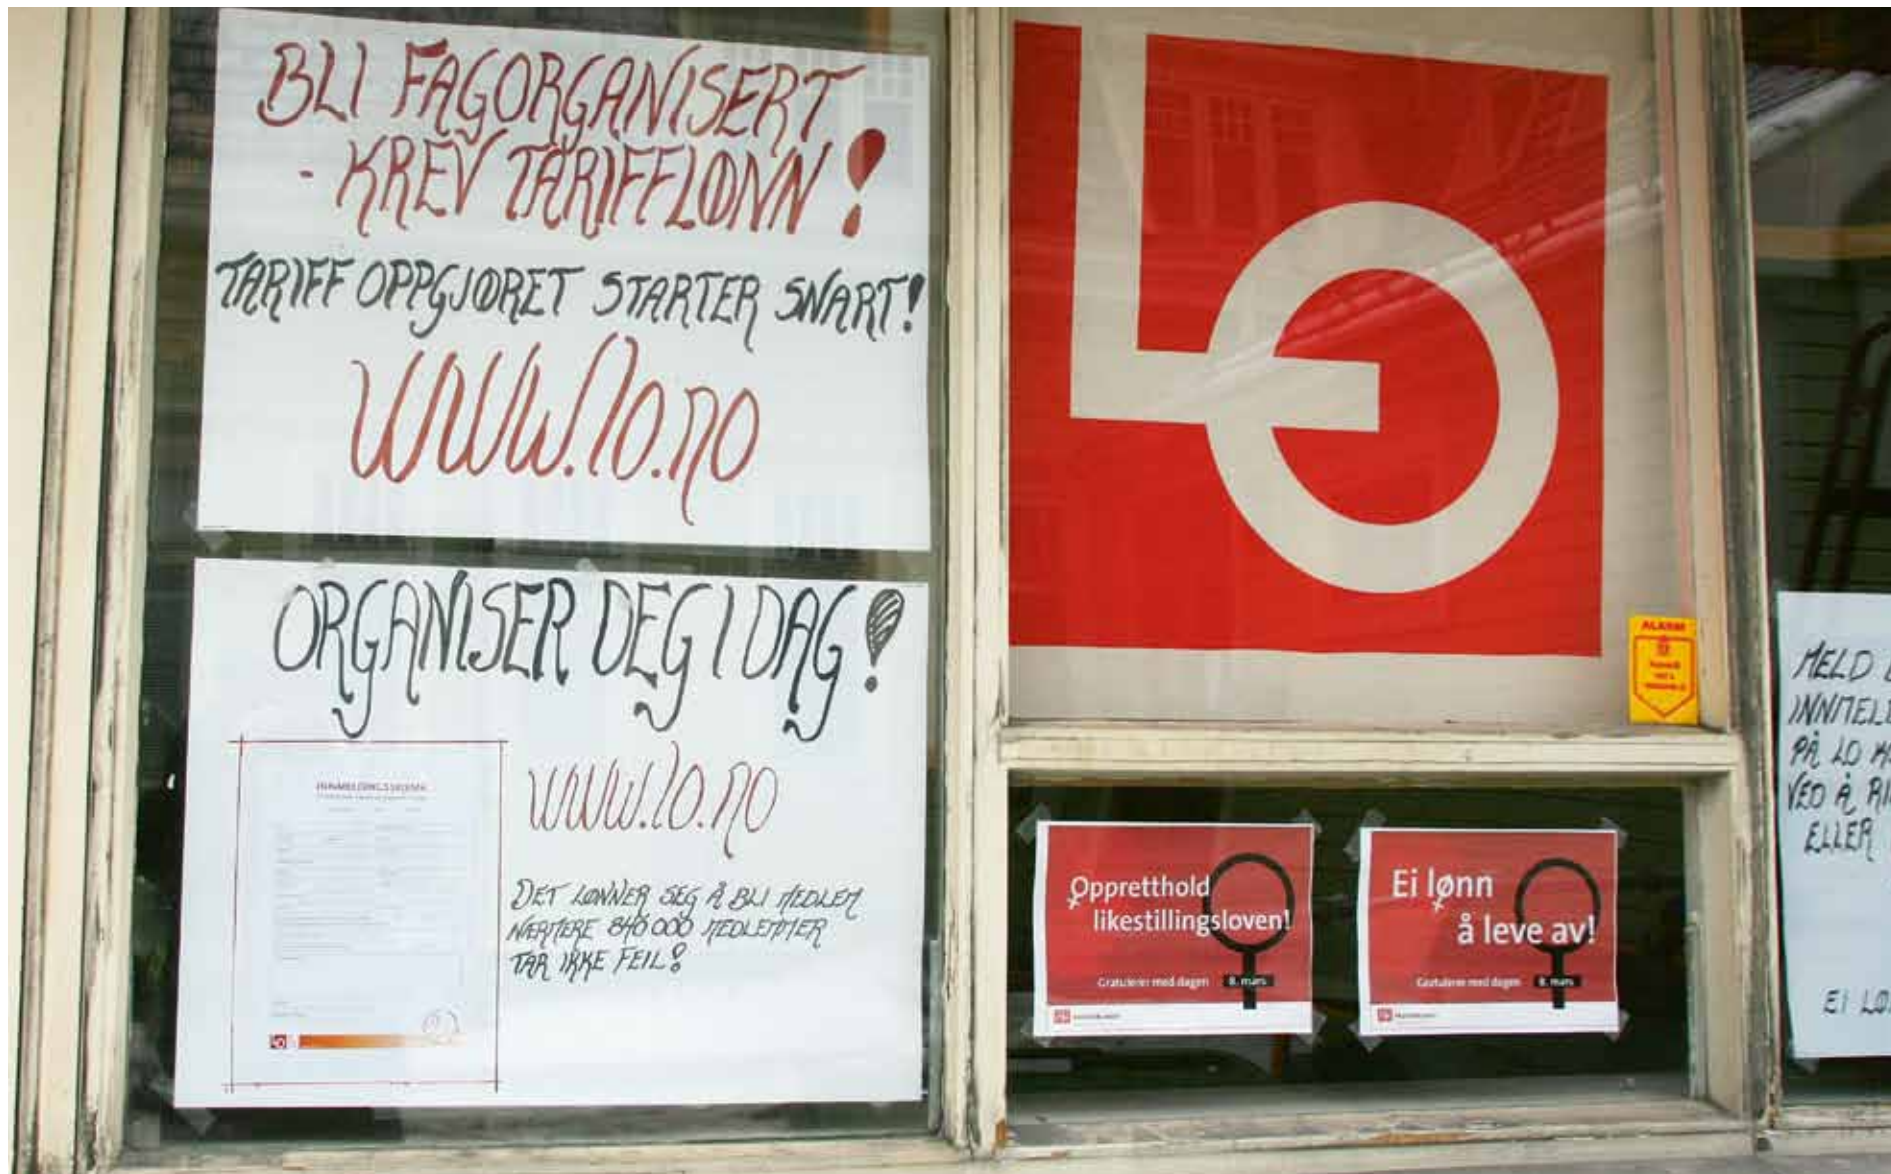 BLI FAGORGANISERT
- KREV TARIFFLØNN!
TARIFF OPPGJØRET STARTER SNART!
www.lo.no
ORGANISER DEG I DAG!
INNMELDINGSSKJEMA
www.lo.no
DET LØNNER SEG Å BLI MEDLEM
NÆRMERE 840 000 MEDLEMMER
TAR IKKE FEIL!
LO
LO
ALARM
Oppretthold
likestillingsloven!
Gratulerer med dagen 8. mars
Ei lønn
å leve av!
Gratulerer med dagen 8. mars
MELD
INNMELD
PÅ LO
VED Å
ELLER
EI